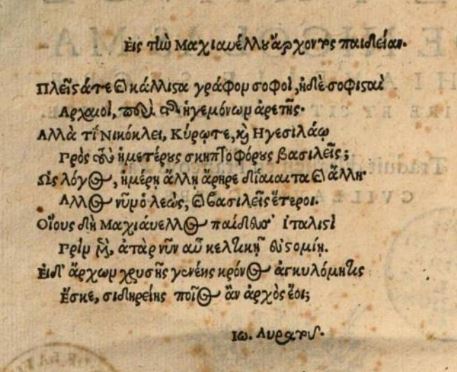 Εἰς τὴν Μαχιαυέλλου ἄρχοντος παιδείαν.
Πλεῖστά τε καὶ κάλλιστα γράφον σοφοὶ, ἠδὲ σοφισταὶ
Ἀρχαῖοι, περὶ ἡγεμόνων ἀρετῆς.
Ἀλλὰ τί Νικόκλει, Κύρῳ τε, καὶ Ἡγεσιλάῳ
Πρὸς τοὺς ἡμετέρους σκηπτοφόρους βασιλεῖς;
Ὡς λόγος, ἡμέρη ἄλλη ἄρηρε δίαιτα καὶ ἄλλη
Ἄλλος νῦν ὁ λεώς, καὶ βασιλεῖς ἕτεροι.
Οἵους δὴ Μαχιάυελλος παίδευσ' ἰταλιστὶ
Πρὶν μὲν, ἀτὰρ νῦν αὖ κελτικῇ εὐστομίῃ.
Εἰ δ' ἄρχων χρυσῆς γενέης κρόνος ἀγκυλομήτης
Ἔσκε, σιδηρείης ποῖος ἂν ἀρχὸς ἔοι;
Ιω. Αυρατος.